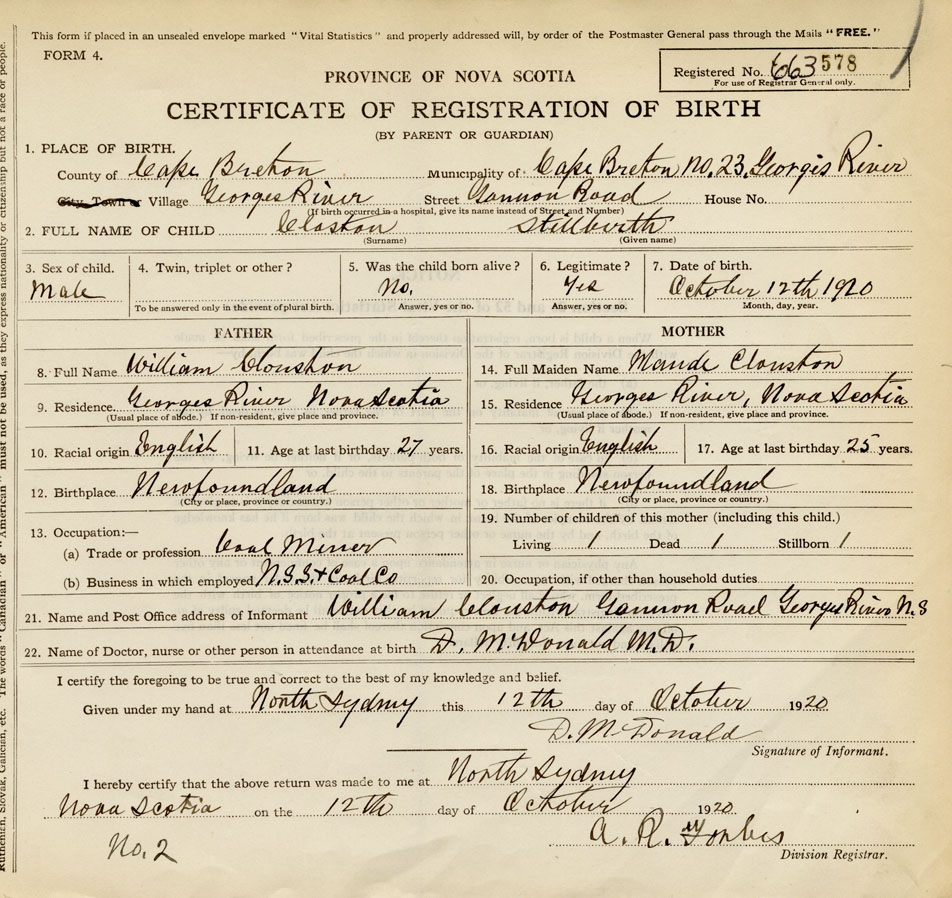 This form if placed in an unsealed envelope marked "Vital Statistics" and properly addressed will, by order of the Postmaster General pass through the Mails "FREE."
FORM 4.
PROVINCE OF NOVA SCOTIA
Registered No. 663 578
For use of Registrar General only.
CERTIFICATE OF REGISTRATION OF BIRTH
(BY PARENT OR GUARDIAN)
1. PLACE OF BIRTH.
County of Cape Breton Municipality of Cape Breton No. 23, Georges River
City, Town or Village Georges River Street Gannon Road House No.
(If birth occurred in a hospital, give its name instead of Street and Number)
2. FULL NAME OF CHILD Clouston Stillbirth
(Surname) (Given name)
3. Sex of child. 4. Twin, triplet or other? 5. Was the child born alive? 6. Legitimate? 7. Date of birth.
Male No. Yes October 12th 1920
To be answered only in the event of plural birth. Answer, yes or no. Answer, yes or no. Month, day, year.
FATHER MOTHER
8. Full Name William Clouston 14. Full Maiden Name Maude Clouston
9. Residence Georges River Nova Scotia 15. Residence Georges River, Nova Scotia
(Usual place of abode.) If non-resident, give place and province. (Usual place of abode.) If non-resident, give place and province.
10. Racial origin English 11. Age at last birthday 27 years. 16. Racial origin English 17. Age at last birthday 25 years.
12. Birthplace Newfoundland 18. Birthplace Newfoundland
(City or place, province or country.) (City or place, province or country.)
13. Occupation:— 19. Number of children of this mother (including this child.)
(a) Trade or profession Coal Miner Living 1 Dead 1 Stillborn 1
(b) Business in which employed N.S.S. & Coal Co 20. Occupation, if other than household duties
21. Name and Post Office address of Informant William Clouston Gannon Road Georges River N.S
22. Name of Doctor, nurse or other person in attendance at birth D. McDonald M.D.
I certify the foregoing to be true and correct to the best of my knowledge and belief.
Given under my hand at North Sydney this 12th day of October 1920
D. McDonald
Signature of Informant.
I hereby certify that the above return was made to me at North Sydney
Nova Scotia on the 12th day of October 1920.
A. R. Forbes
Division Registrar.
No. 2
Ruthenian, Slovak, Galician, etc. The words "Canadian" or "American" must not be used, as they express nationality or citizenship but not a race or people.